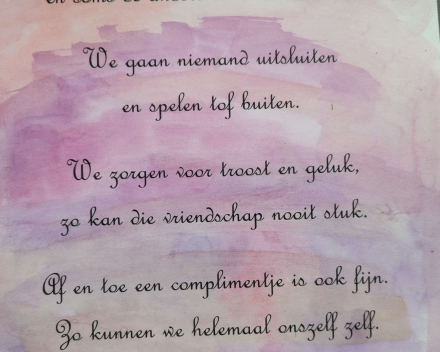 We gaan niemand uitsluiten
en spelen tof buiten.
We zorgen voor troost en geluk,
zo kan die vriendschap nooit stuk.
Af en toe een complimentje is ook fijn.
Zo kunnen we helemaal onszelf zelf.